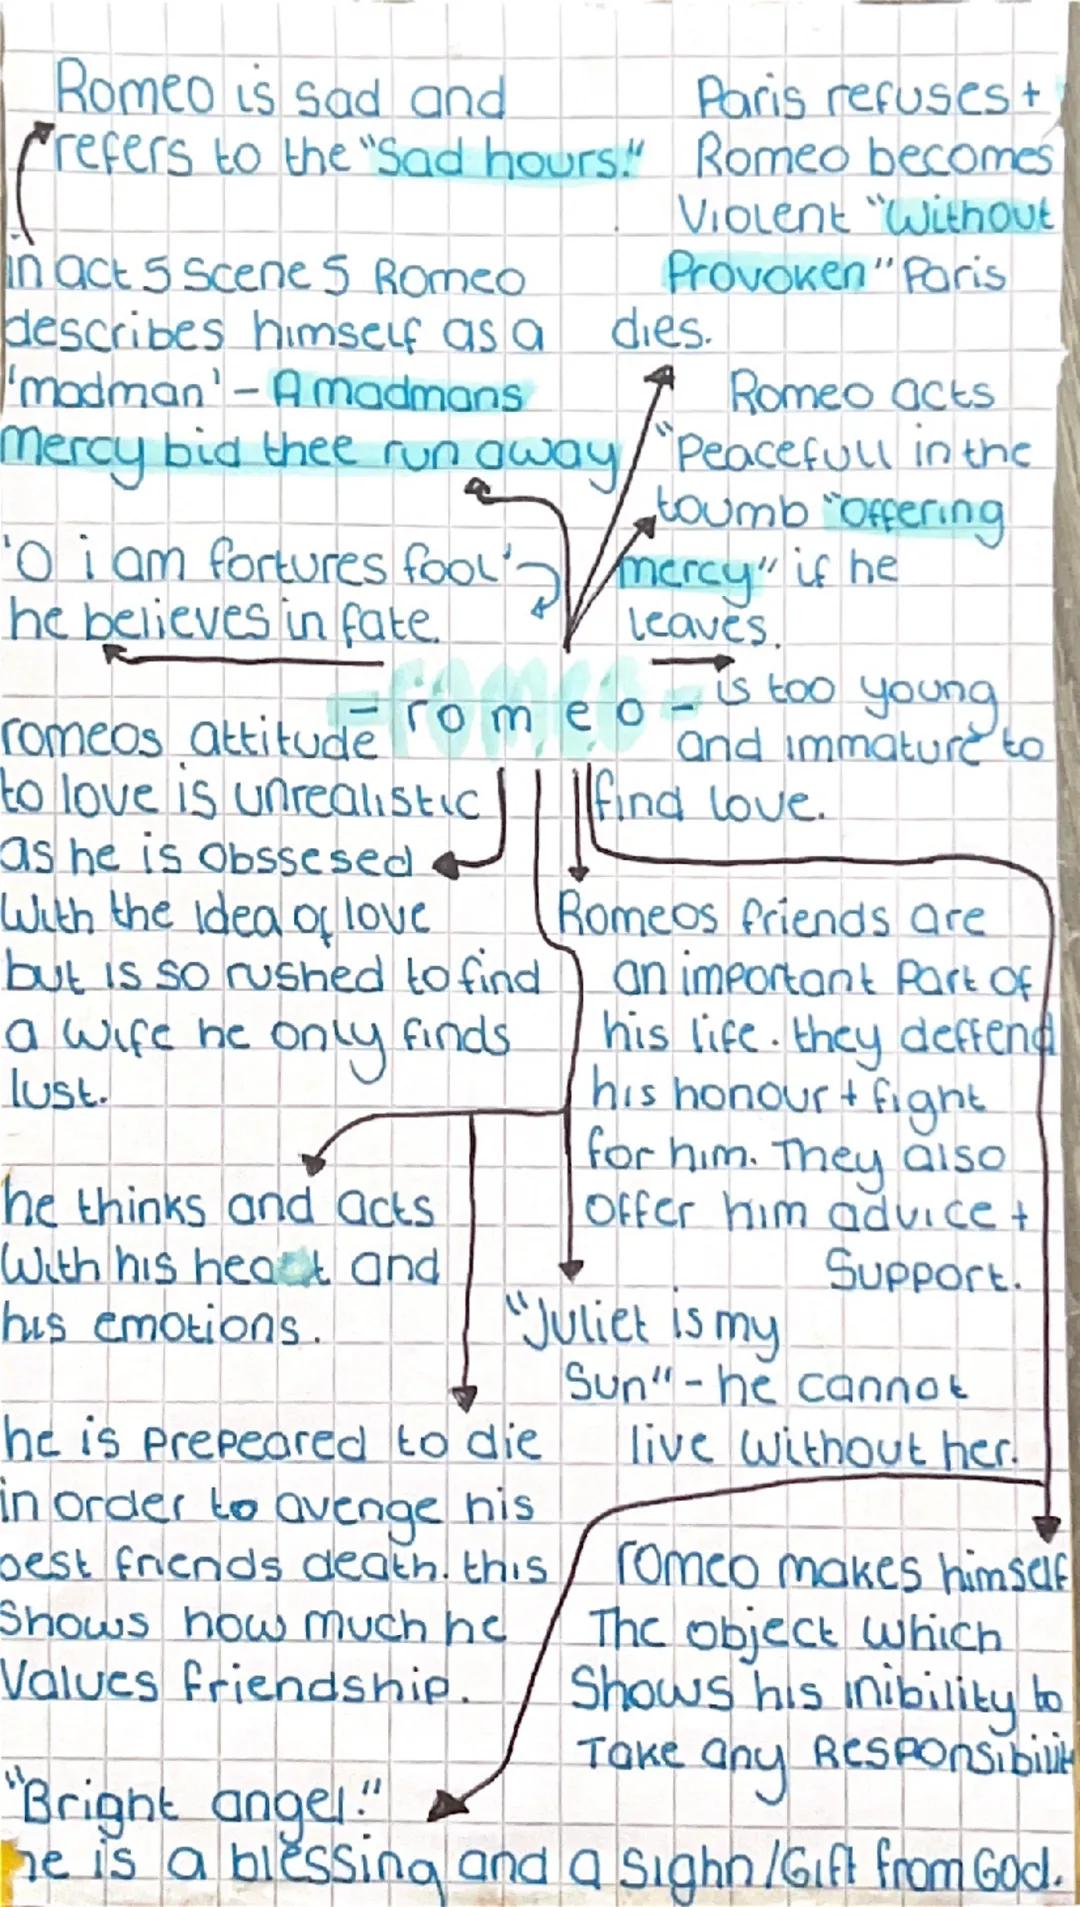 Romeo is sad and
refers to the "Sad hours."
in act 5 Scene 5 Romeo
describes himself as a
'madman' - A madmans
Mercy bid thee run away
Paris refuses +
Romeo becomes
Violent "Without
Provoken" Paris
dies.
Romeo acts
"Peacefull in the
toumb "Offering
mercy" if he
leaves.
'O i am fortures fool'
he believes in fate.
- romeo -
is too young
and immature to
find love.
romeos attitude
to love is unrealistic
as he is obssesed
With the idea of love
but is so rushed to find
a wife he only finds
lust.
Romeos friends are
an important Part of
his life. they deffend
his honour + fight
for him. They also
offer him advice +
Support.
he thinks and acts
With his heart and
his emotions.
"Juliet is my
Sun" - he cannot
live without her.
he is prepeared to die
in order to avenge his
best friends death. this
Shows how much he
Values friendship.
romeo makes himself
The object which
Shows his inibility to
Take any Responsibilit
"Bright angel."
he is a blessing and a sighn/Gift from God.